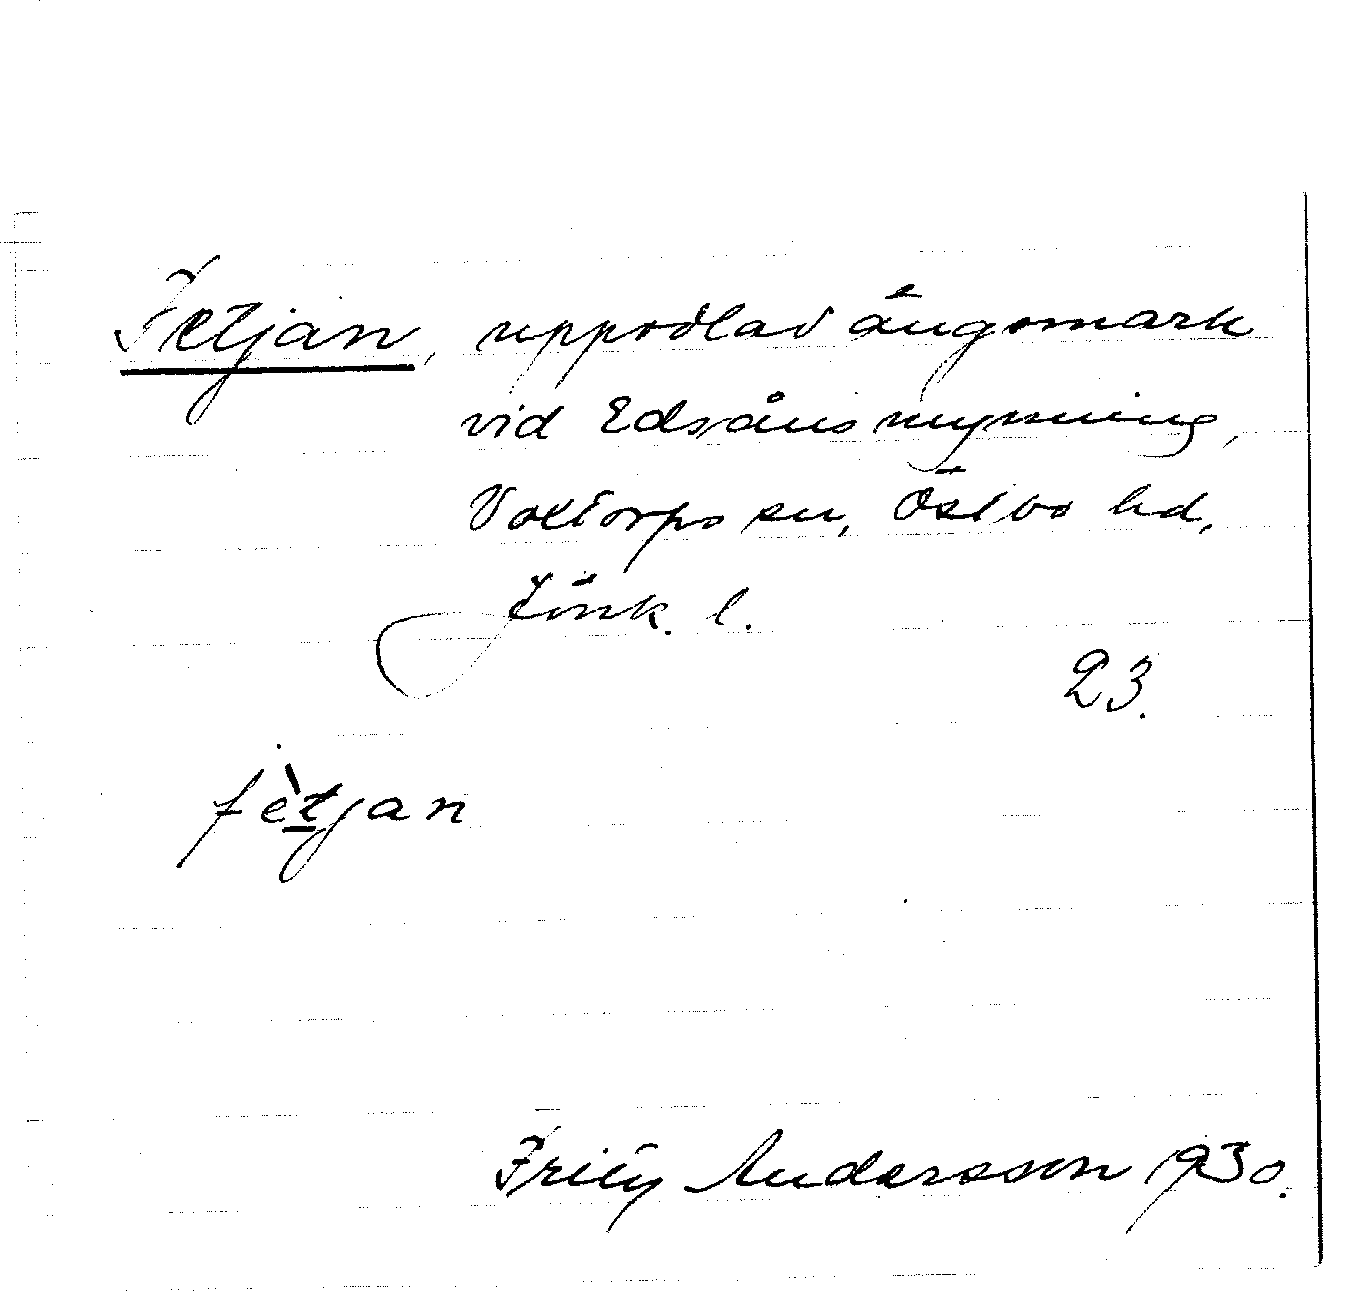 Fetjan, uppodlad ängsmark
vid Edsåns mynning,
Voxtorps sn, Östbo hd,
Jönk. l.
23.
fètjan
Fritz Andersson 1930.